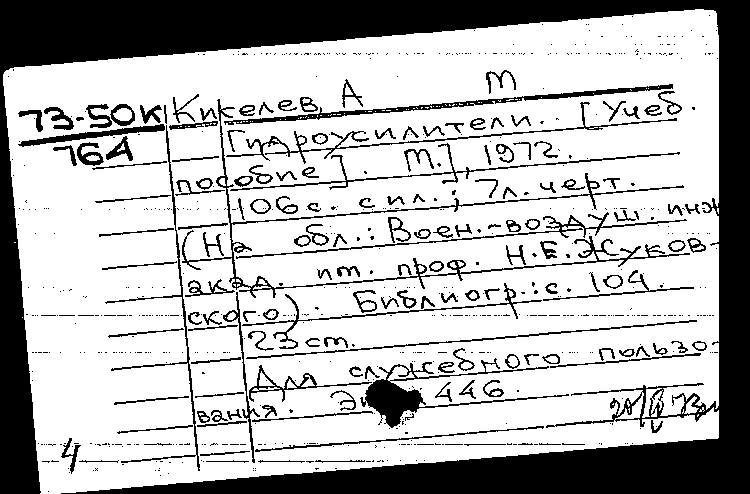 73-50к
764
Кикелев, А М
Гидроусилители. [Учеб.
пособие]. М.], 1972.
106с. с ил.; 7л. черт.
(На обл.: Воен.-воздуш. инж
акад. им. проф. Н.Е.Жуков-
ского). Библиогр.: с. 104.
23см.
Для служебного пользо-
вания. 446.
4